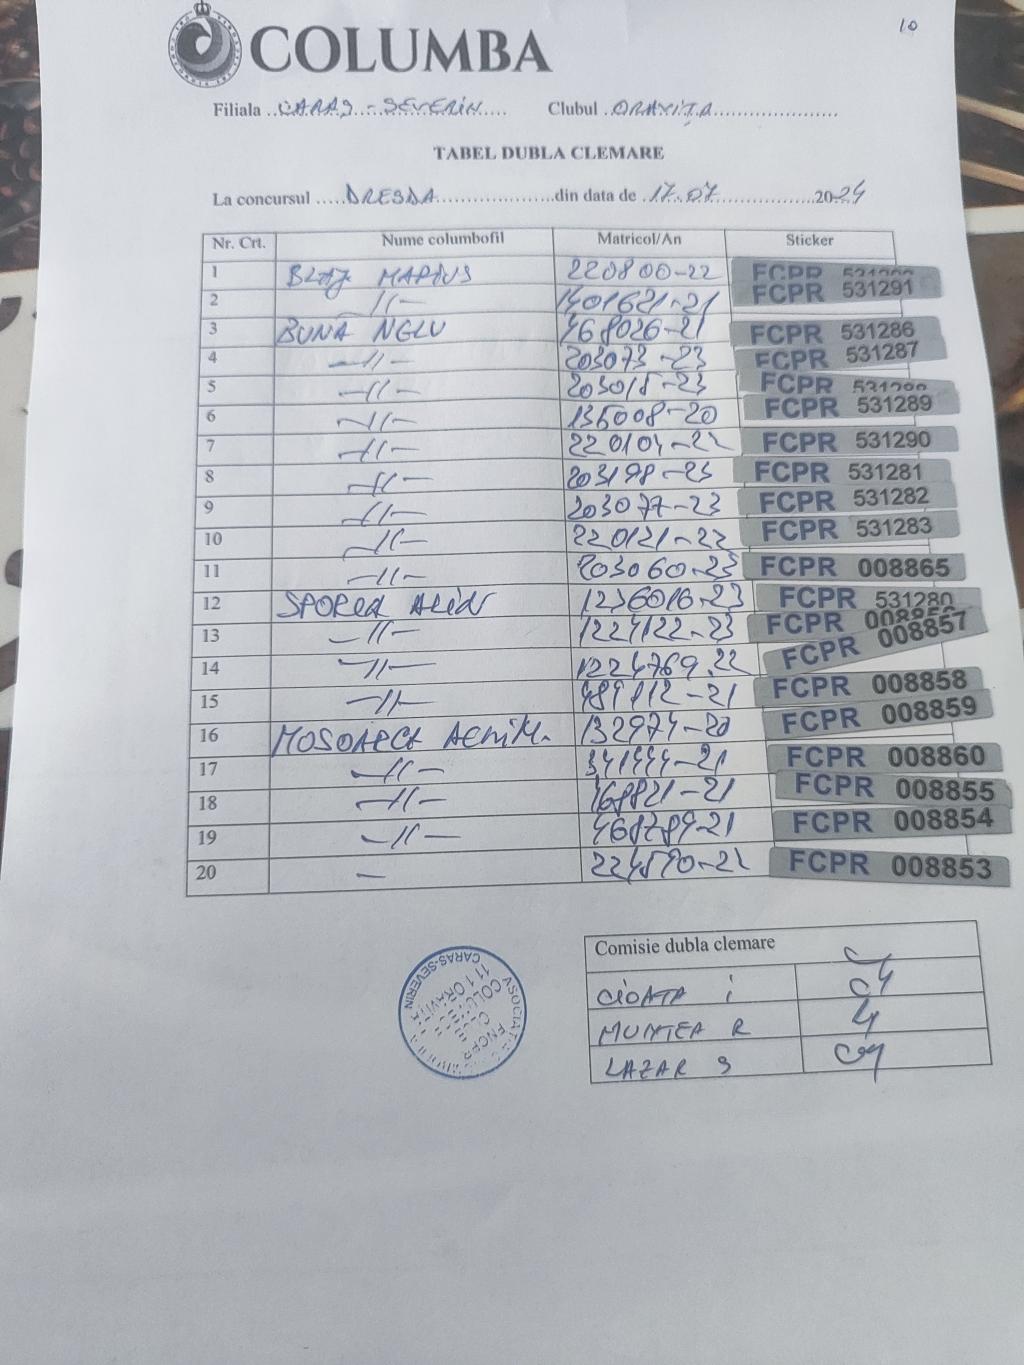 10
COLUMBA
Filiala ..CARAS-SEVERIN...... Clubul ..ORAVIȚA......................
TABEL DUBLA CLEMARE
La concursul .....DRESDA......................din data de .17.07..................2024
Nr. Crt. Nume columbofil Matricol/An Sticker
1 BLAJ MARIUS 220800-22 FCPR
2 -//- 1401621-21 FCPR 531291
3 BUNA NELU 468026-21 FCPR 531286
4 -//- 203073-23 FCPR 531287
5 -//- 203018-23 FCPR
6 -//- 135008-20 FCPR 531289
7 -//- 220104-22 FCPR 531290
8 -//- 203198-23 FCPR 531281
9 -//- 203077-23 FCPR 531282
10 -//- 220121-22 FCPR 531283
11 -//- 203060-23 FCPR 008865
12 SPOREA ALIN 1236016-23 FCPR 531280
13 -//- 1224122-23 FCPR
14 -//- 1224769.22 FCPR 008857
15 -//- FCPR 008858
16 132974-20 FCPR 008859
17 -//- FCPR 008860
18 -//- 168821-21 FCPR 008855
19 -//- 468789-21 FCPR 008854
20 - 224590-22 FCPR 008853
Comisie dubla clemare
CIOATA i
MUNTEA R
LAZAR S
ASOCIATIA
FNCPR
CLUB
COLUMBOFIL
111 ORAVITA
CARAS-SEVERIN